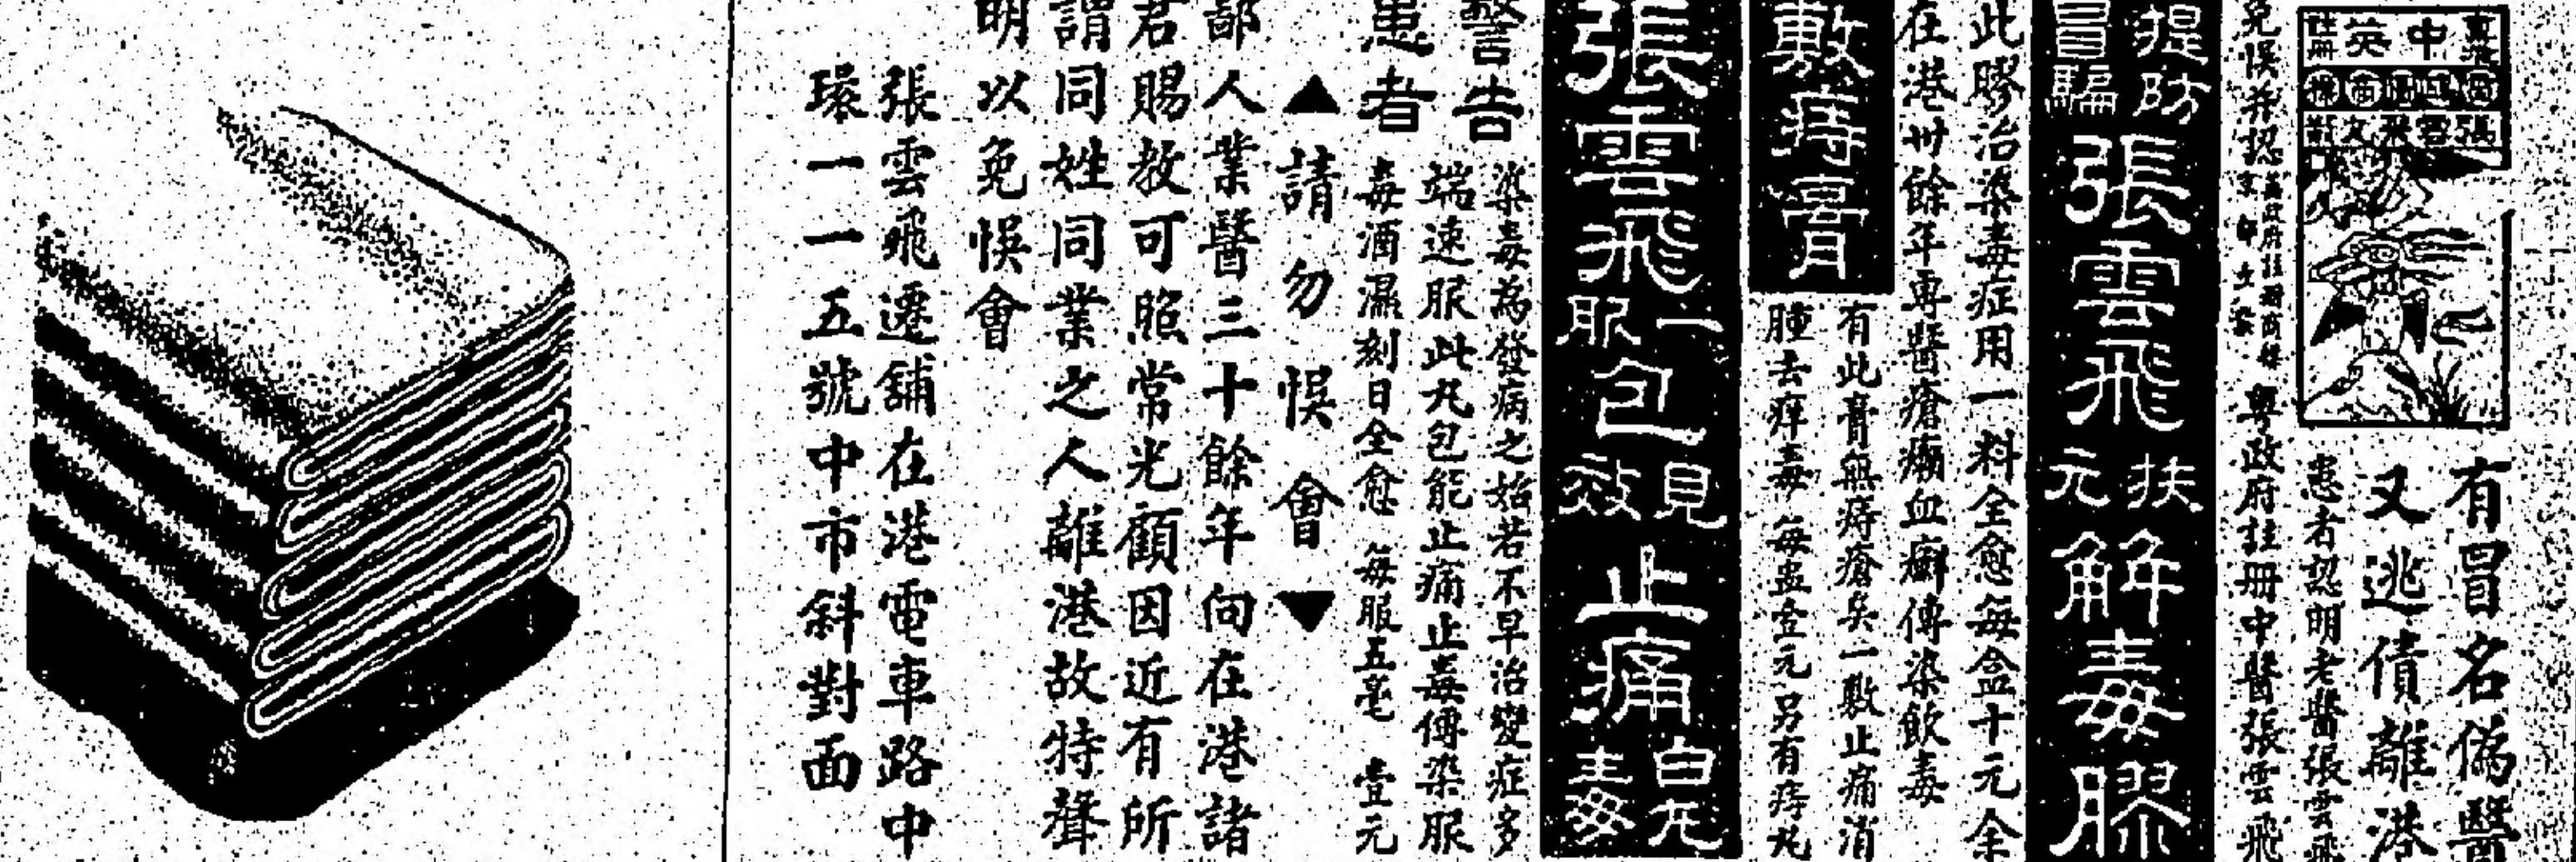 有冒名偽醫
又逃債離港
患者認明老醫張雲飛
中英
張雲飛
免悞并認
粵政府註冊中醫張雲飛
提防
冒騙
張雲飛
扶元
解毒膠
此膠治染毒症用一料全愈每盒十元余
在港卅餘年專醫瘡癩血癬傳染飲毒
敷痔膏
有此膏無痔瘡矣一敷止痛消
腫去痒毒每盅壹元另有痔丸
張雲飛
一包
服
見效
止痛
白丸
毒
警告
患者
染毒為發病之始若不早治變症多
端速服此丸包能止痛止毒傳染服
毒酒濕刻日全愈 每服五毫 壹元
▲請勿悞會▼
鄙人業醫三十餘年向在港諸
君賜教可照常光顧因近有所
謂同姓同業之人離港故特聲
明以免悞會
張雲飛遷舖在港電車路中
環一一五號中市斜對面